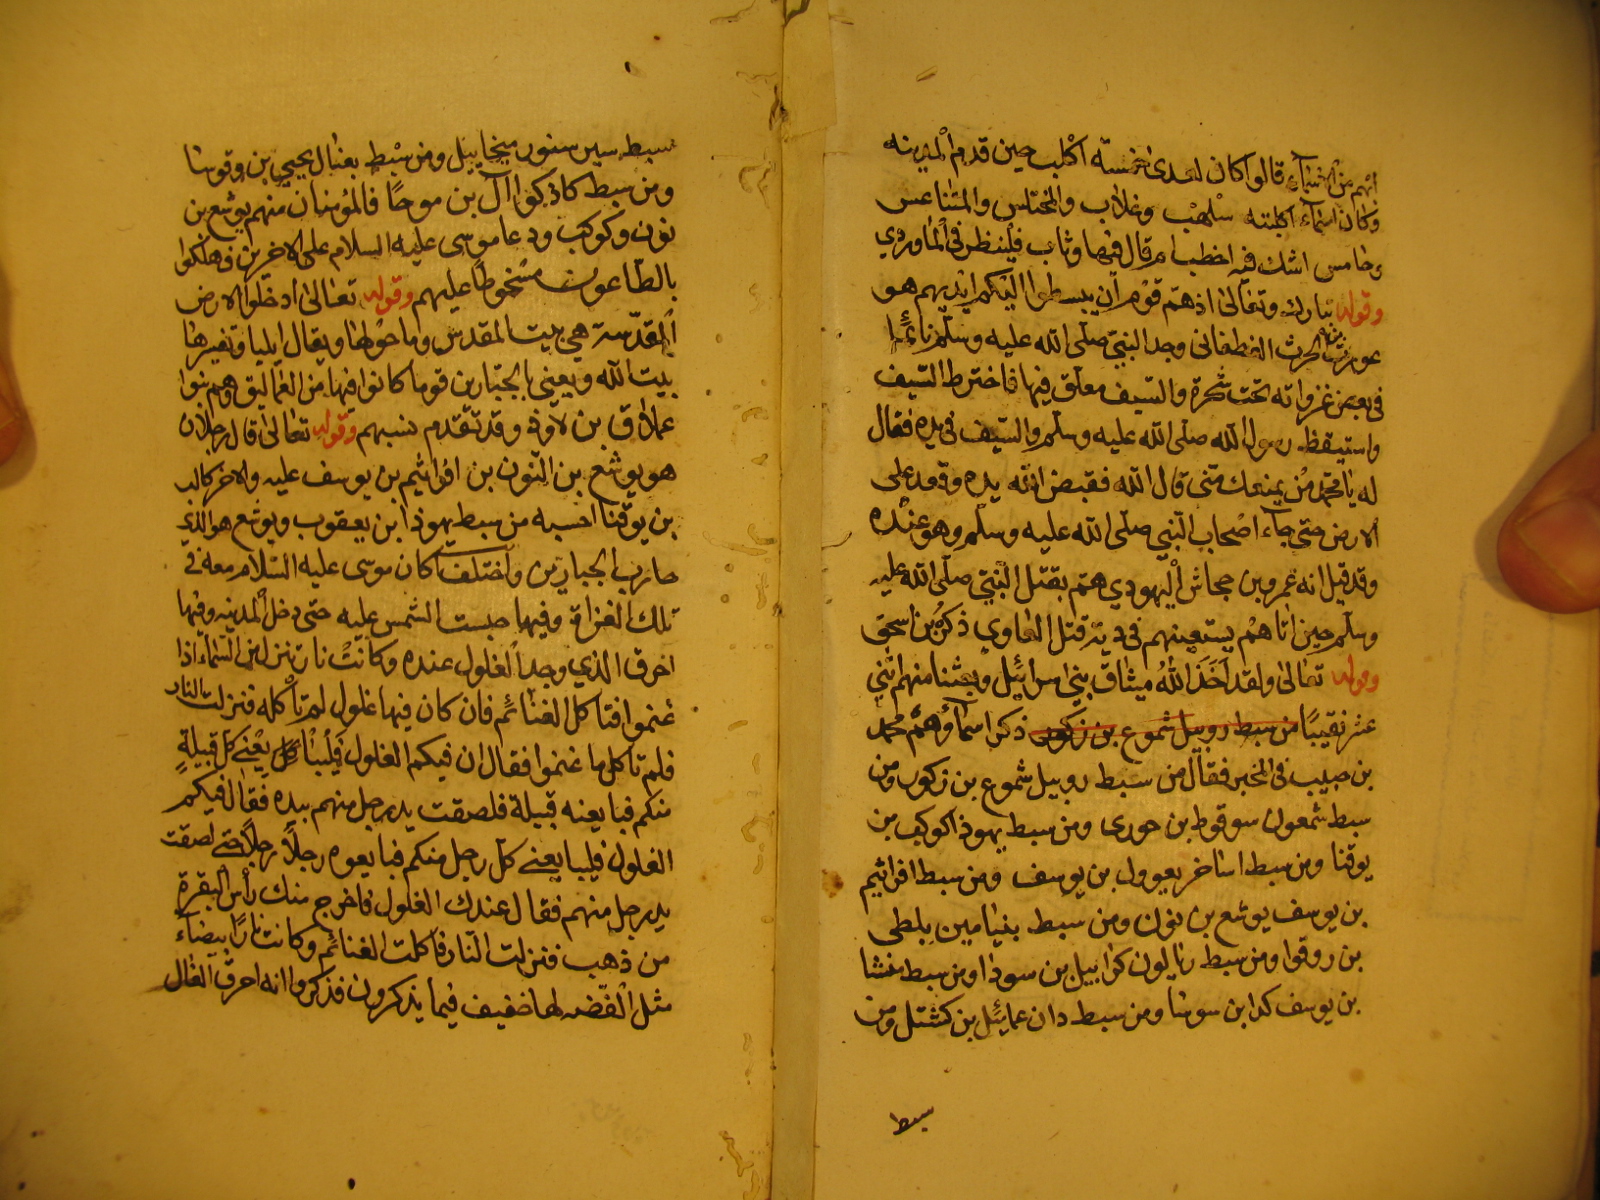 انهم من اسماء قالوا كان لعدى خمسة اكلب حين قدم المدينه
وكان اسماء اكلبته سلهب وغلاب والمختلس والمتناعس
وخامس اشك فيه اخطب ام قال فيها وثاب فلينظر في الماوردي
وقوله تبارك وتعالى اذ هم قوم ان يبسطوا اليكم ايديهم هو
غورث بن الحرث الغطفاني وجد النبي صلى الله عليه وسلم نائما
في بعض غزواته تحت شجرة والسيف معلق فيها فاخترط السيف
واستيقظ رسول الله صلى الله عليه وسلم والسيف في يده فقال
له يا محمد من يمنعك مني قال الله فقبض الله يده وقعد على
الارض حتى جاء اصحاب النبي صلى الله عليه وسلم وهو عنده
وقد قيل انه عمرو بن جحاش اليهودي هم بقتل النبي صلى الله عليه
وسلم حين اتاهم يستعينهم في دية قتل ذكره بن اسحق
وقوله تعالى ولقد اخذ الله ميثاق بني اسرائيل وبعثنا منهم اثني
عشر نقيبا من سبط روبيل شموع بن زكور ذكر اسماؤهم محمد
بن حبيب في المخبر فقال من سبط روبيل شموع بن زكور ومن
سبط شمعون سوقوط بن حورى ومن سبط يهوذا كوكب بن
يوقنا ومن سبط اساخر يعوول بن يوسف ومن سبط افراثيم
بن يوسف يوشع بن نون ومن سبط بنيامين بلطى
بن روقوا ومن سبط ربالون كرابيل بن سودا ومن سبط منشا
بن يوسف كدا بن سوشا ومن سبط دان عمائيل بن كشتل ومن
سبط
سبط سير ستور بن ميخاييل ومن سبط يعنال يحيى بن وقوسا
ومن سبط كاذ كوا ال بن موحا فالمؤمنان منهم يوشع بن
نون وكوكب ودعا موسى عليه السلام على الاخرين فهلكوا
بالطاعون مسخوطا عليهم وقوله تعالى ادخلوا الارض
المقدسة هي بيت المقدس وما حولها ويقال ايليا وتفسيرها
بيت الله ويعني بالجبارين قوما كانوا فيها من العماليق وهم بنوا
عملاق بن لاوذ وقد تقدم نسبهم وقوله تعالى قال رجلان
هو يوشع بن النون بن افراثيم بن يوسف عليه والاخر كالب
بن يوقنا احسبه من سبط يهوذا بن يعقوب ويوشع هو الذي
حارب الجبارين واختلف اكان موسى عليه السلام معه في
تلك الغزاة وفيها حبست الشمس عليه حتى دخل المدينه وفيها
احرق الذي وجد الغلول عنده وكانت نار تنزل من السماء اذا
غنموا فتاكل الغنائم فان كان فيها غلول لم تاكله فنزلت النار
فلم تاكل ما غنموا فقال ان فيكم الغلول فليبايعني كل قبيلة
منكم فبايعته قبيلة فلصقت يد رجل منهم بيده فقال فيكم
الغلول فليبايعني كل رجل منكم فبايعوه رجلا رجلا حتى لصقت
يد رجل منهم فقال عندك الغلول فاخرج منك راس البقرة
من ذهب فنزلت النار فاكلت الغنائم وكانت نارا بيضاء
مثل الفضه لها حفيف فيما يذكرون فذكروا انه احرق الغال